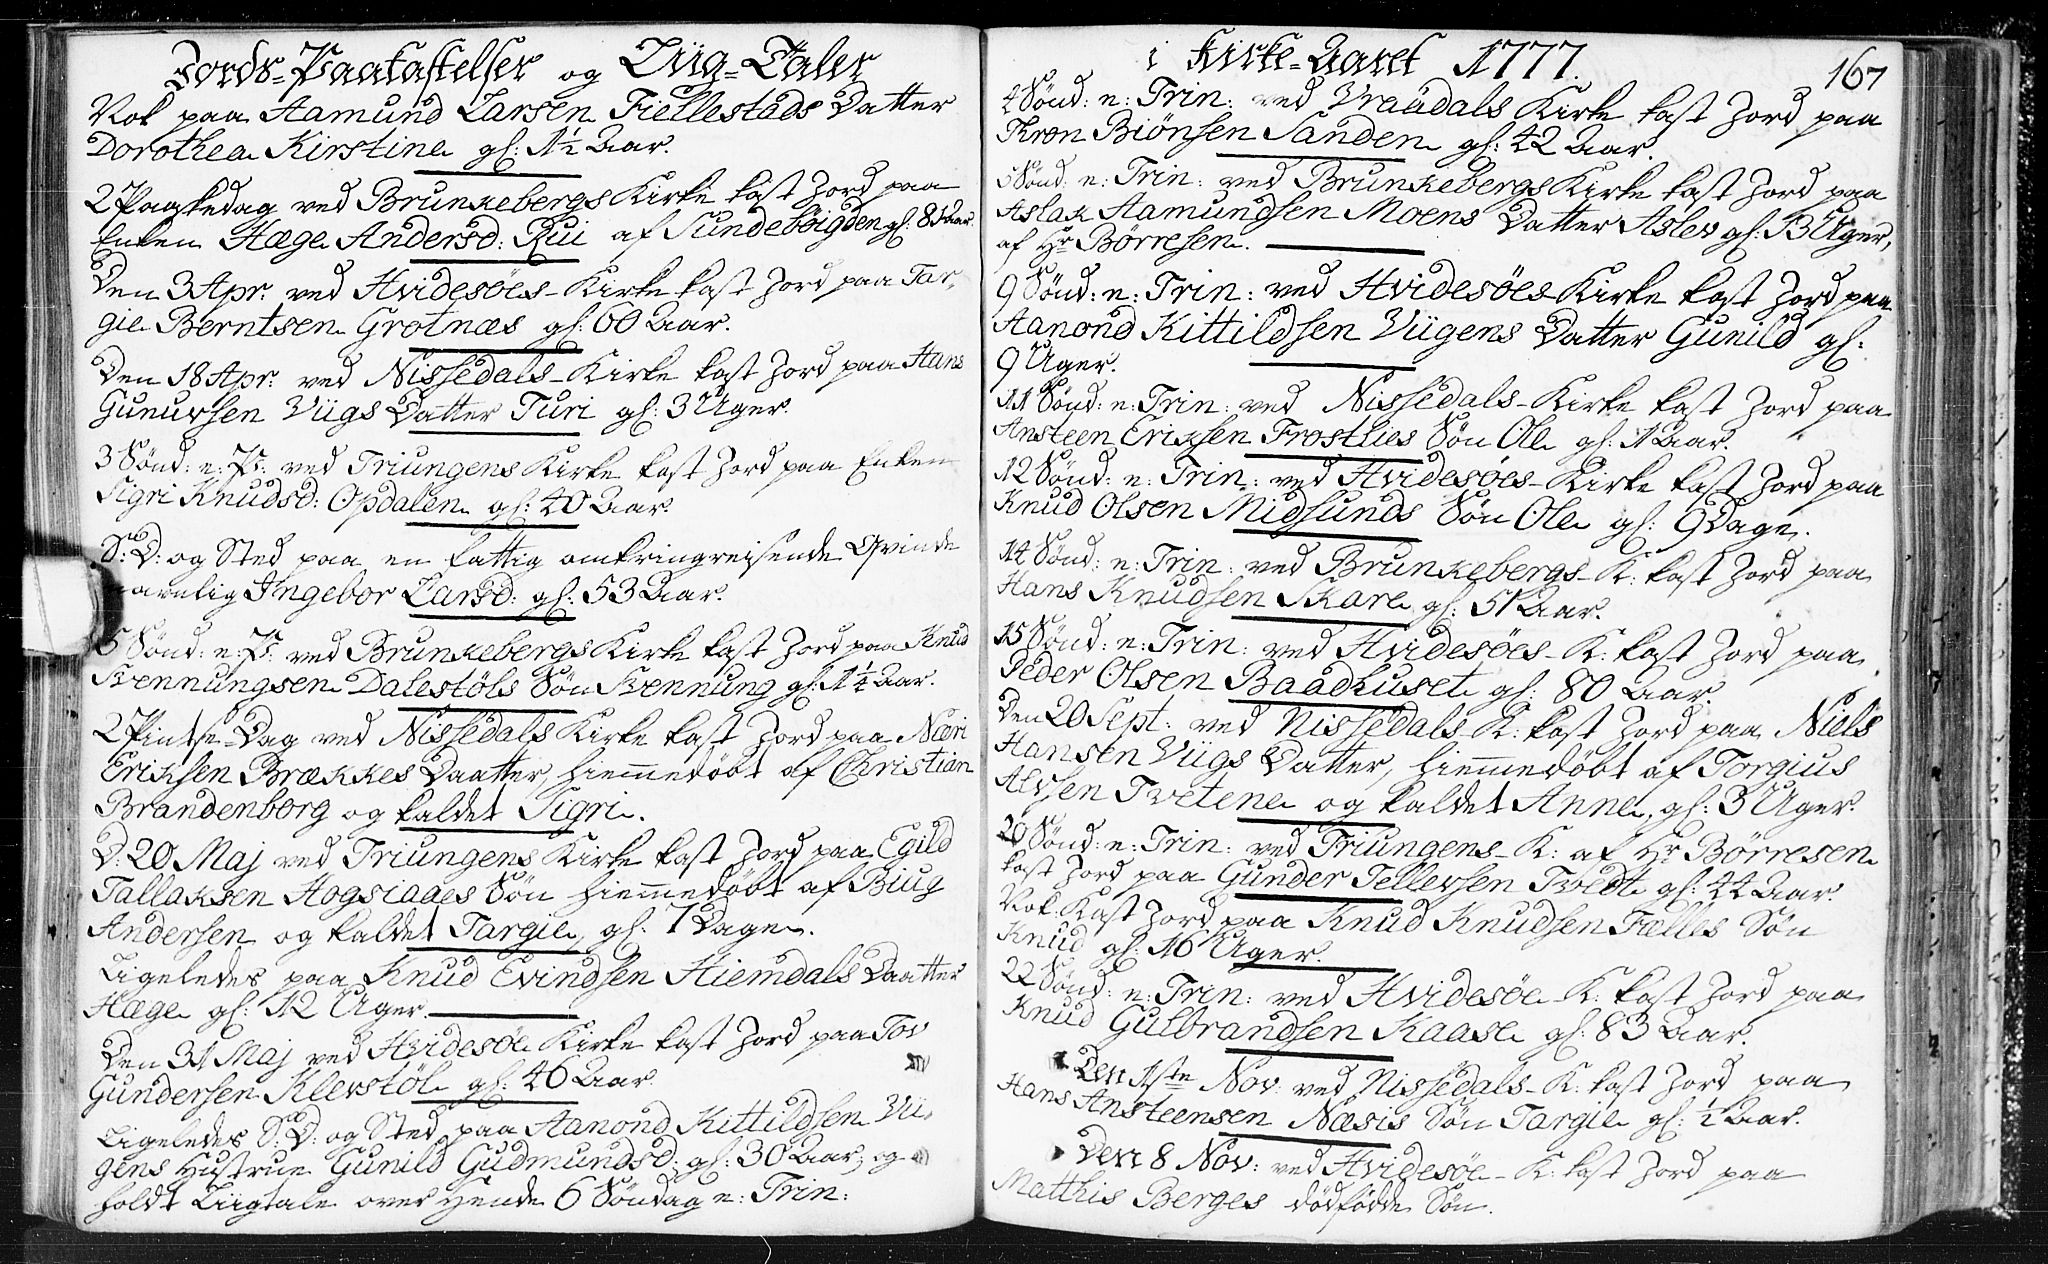 Jords-Paakastelser og Liig-Taler
Nok paa Aamund Larsen Fiellestads Datter
Dorothea Kirstine gl: 1½ Aar.
2 Paaskedag ved Brunkebergs Kirke kast Jord paa
Enken Hæge Andersd: Rui af Sundebøigden gl: 81 Aar.
Den 3 Apr: ved Hvidesøes-Kirke kast Jord paa Tar-
gie Berntsen Grotnæs gl: 60 Aar.
Den 18 Apr: ved Nissedals-Kirke kast Jord paa Hans
Gunursen Viigs Datter Turi gl: 3 Uger.
3 Sønd: e: P: ved Triungens Kirke kast Jord paa Enken
Sigri Knudsd: Opdalen gl: 40 Aar.
S: D: og Sted paa en fattig omkringreisende Qvinde
navnlig Ingebor Larsd: gl: 53 Aar.
5 Sønd: e: P: ved Brunkebergs Kirke kast Jord paa Knud
Svennungsen Dalestøls Søn Svennung gl: 1¼ Aar.
2 Pintse-Dag ved Nissedals Kirke kast Jord paa Næri
Eriksen Brækkes Daatter, hiemmedøbt af Christian
Brandenborg og kaldet Sigri.
D: 20 Maj ved Triungens Kirke kast Jord paa Egild
Tallaksen Hogsiaaes Søn hiemmedøbt af Biug
Andersen og kaldet Targie, gl: 7 Dage.
Ligeledes paa Knud Evindsen Hiemdals Daatter
Hæge gl: 12 Uger.
Den 31 Maj ved Hvidesøe Kirke kast Jord paa Tov
Gundersen Klevstøl gl: 46 Aar.
Ligeledes S: D: og Sted paa Aanond Kittildsen Vii-
gens Hustrue Gunild Gudmundsd: gl: 30 Aar; og
holdt Liigtale over hende 6 Søndag e: Trin:
i Kirke-Aaret 1777.
167
4 Sønd: e: Trin: ved Vraadals Kirke kast Jord paa
Thron Biønsen Sanden gl: 42 Aar.
5 Sønd: e: Trin: ved Brunkebergs Kirke kast Jord paa
Aslak Aamundsen Moens Datter Aslev gl: 13 Uger,
af Hr Børresen.
9 Sønd: e: Trin: ved Hvidesøes Kirke kast Jord paa
Aanond Kittildsen Viigens Datter Gunild gl:
9 Uger.
11 Sønd: e: Trin: ved Nissedals-Kirke kast Jord paa
Ansteen Eriksen Frostlies Søn Ole gl: 1 Aar.
12 Sønd: e: Trin: ved Hvidesøes-Kirke kast Jord paa
Knud Olsen Midsunds Søn Ole gl: 9 Dage.
14 Sønd: e: Trin: ved Brunkebergs-K: kast Jord paa
Hans Knudsen Skare gl: 51 Aar.
15 Sønd: e: Trin: ved Hvidesøes-K: kast Jord paa
Peder Olsen Baadhuset gl: 80 Aar.
Den 20 Sept: ved Nissedals K: kast Jord paa Niels
Hansen Viigs Datter, hiemmedøbt af Torgius
Alvsen Tvetene og kaldet Anne, gl: 3 Uger.
20 Sønd: e: Trin: ved Triungens-K: af Hr Børresen
kast Jord paa Gunder Tellevsen Tvedt gl: 44 Aar.
Nok: Kast Jord paa Knud Knudsen Fælles Søn
Knud gl: 16 Uger.
22 Sønd: e: Trin: ved Hvidesøe K: kast Jord paa
Knud Gulbrandsen Kaase gl: 83 Aar.
Den 1ste Nov: ved Nissedals-K: kast Jord paa
Hans Ansteensen Næsis Søn Targie gl: ½ Aar.
Den 8 Nov: ved Hvidesøe-K: kast Jord paa
Matthis Berges dødfødde Søn.